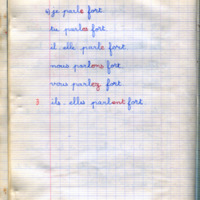 a) je parle fort
tu parles fort
il. elle parle fort.
nous parlons fort.
vous parlez fort.
3 ils. elles parlent fort